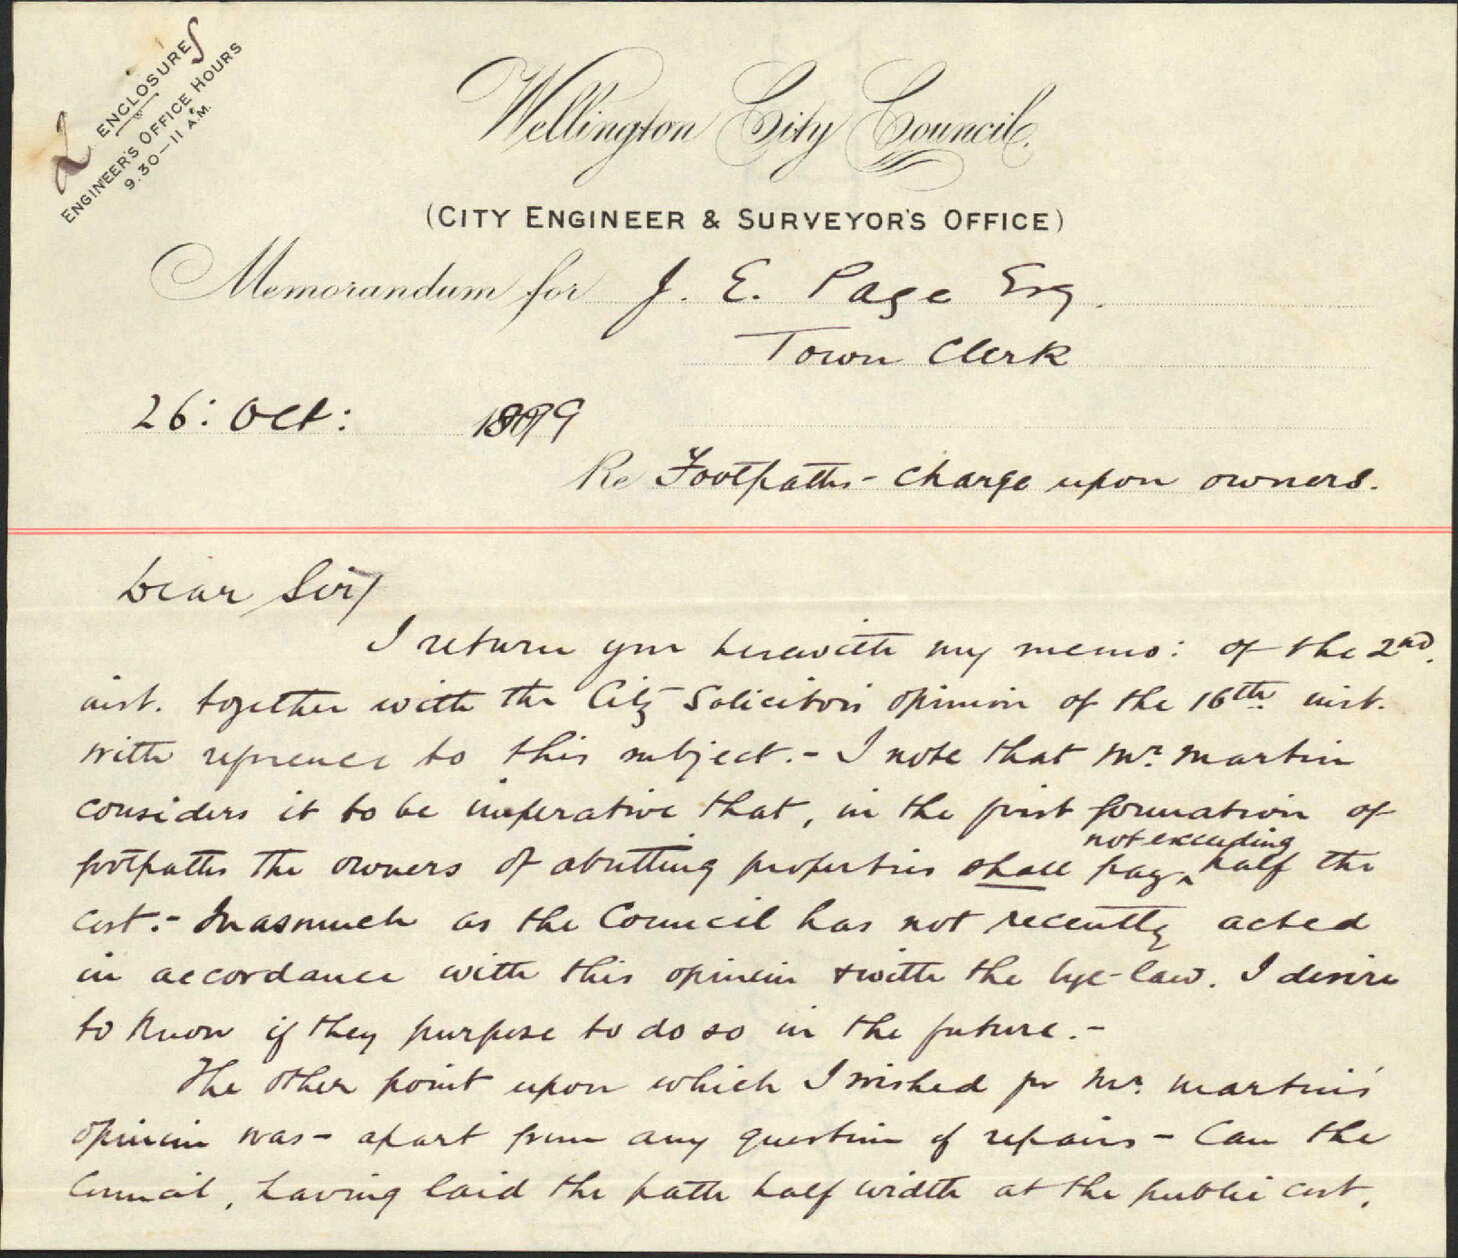 2 ENCLOSURES
ENGINEER'S OFFICE HOURS
9.30—11 A.M.
Wellington City Council.
(CITY ENGINEER & SURVEYOR'S OFFICE)
Memorandum for J. E. Page Esq.
Town Clerk
26: Oct: 1899
Re Footpaths - charge upon owners.
Dear Sir/
I return you herewith my memo: of the 2nd.
inst. together with the City Solicitor's opinion of the 16th. inst.
with reference to this subject. - I note that Mr. Martin
considers it to be imperative that, in the first formation of
not exceeding
footpaths the owners of abutting properties shall pay ^ half the
cost. - Inasmuch as the Council has not recently acted
in accordance with this opinion & with the bye-law. I desire
to know if they purpose to do so in the future. -
The other point upon which I wished for Mr. Martin's
opinion was - apart from any question of repairs - Can the
Council, having laid the path half width at the public cost,